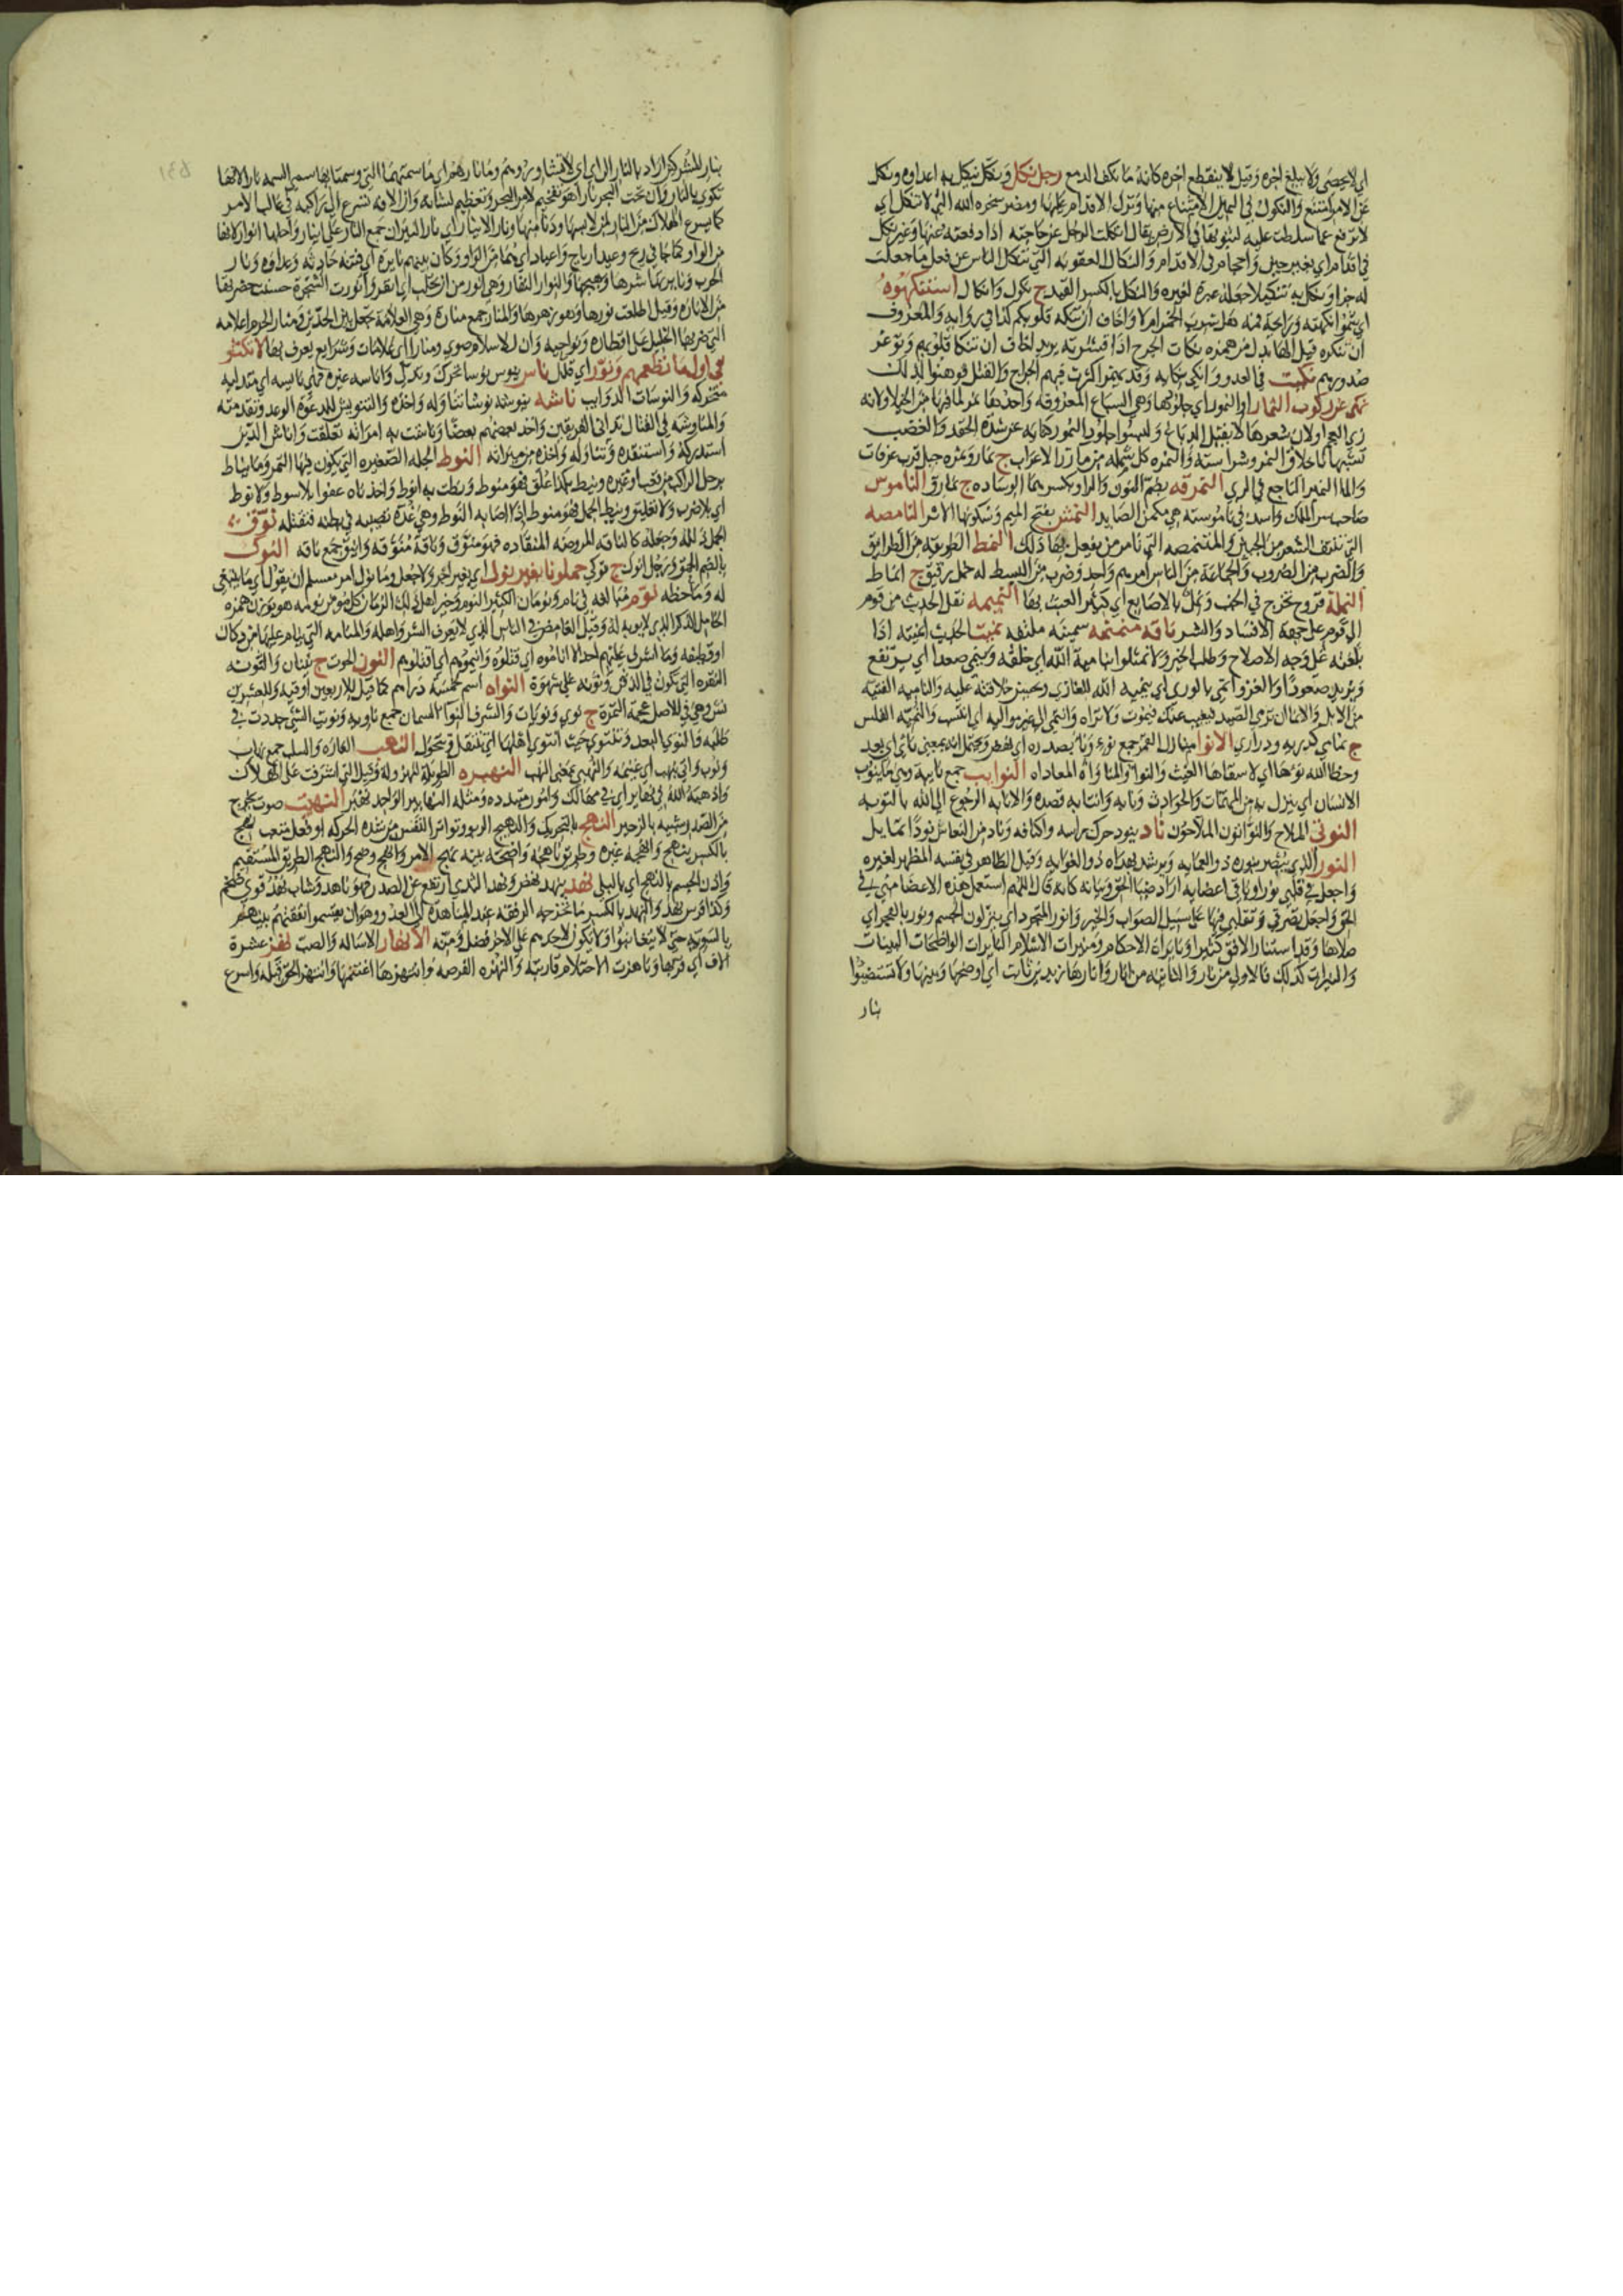 اي لا يحصى ولا يبلغ اخره وقيل لا ينقطع اخره كانه ما نكف الدمع رجل نكل ونكل ينكل به اعداوه ونكل
عن الامر امتنع والنكول في اليمين الامتناع منها وترك الاقدام عليها ومضر سخره الله التي لا تنكل اي
لا ترفع عما سلطت عليه لثبوتها في الارض يقال انكلت الرجل عن حاجته اذا دفعته عنها وغير نكل
في اقدام اي بغير جبن واحجام في الاقدام والنكال العقوبه التي تنكل الناس عن فعل ما جعلت
له جزا ونكل به تنكيلا جعله عبرة لغيره والنكل بالكسر القيد ج نكول وانكال استنكهوه
اي شموا نكهته ورايحة فمه هل شرب الخمر ام لا واخاف ان تنكه قلوبكم كذا في روايه والمعروف
ان تنكره قيل الها بدل من همزه نكات الجرح اذا قشرته يريد اخاف ان تنكا قلوبهم وتوغر
صدورهم نكيت في العدو وانكي نكايه وقد يهمز اكثرت فيهم الجراح والقتل فوهنوا لذلك
نهى عن ركوب النمار او النمور اي جلودها وهي السباع المعروفه واحدها نمر لما فيها من الخيلا ولانه
زي العجم اولان شعرها لا يقبل الدباغ ولبسوا جلود النمور كنايه عن شدة الحقد والغضب
تشبيها باخلاق النمر وشراسته والنمره كل شمله من مازر الاعراب ج نمار ونمره جبل قرب عرفات
والما النمير الناجع في الري النمرقه بضم النون والرا وبكسرهما الوساده ج نمارق الناموس
صاحب سر الملك واسد في ناموسته هي مكمن الصايد النمش بفتح الميم وسكونها الاثر النامصه
التي تنتف الشعر من الجبين والمتنمصه التي تامر من يفعل بها ذلك النمط الطريقه من الطرايق
والضرب من الضروب والجماعة من الناس امرهم واحد وضرب من البسط له خمل رقيق ج انماط
النملة قروح تخرج في الجنب ونمل بالاصابع اي كثير العبث بها النميمه نقل الحديث من قوم
الى قوم على جهة الافساد والشر ناقه منمنمه سمينه ملتفه نميت الحديث انميته اذا
بلغته على وجه الاصلاح وطلب الخير ولا تمثلوا بناميه الله اي خلقه وينمي صعدا اي يرتفع
ويزيد صعودا والغزو انمى بالوري اي ينميه الله للغازي ويحسن خلافته عليه والناميه الفتيه
من الابل والانما ان ترمي الصيد فيغيب عنك فيموت ولا تراه وانتمى الى غير مواليه اي انتسب والنميه الفلس
ج نمامي كذريه وذراري الانوا منازل القمر جمع نوء وناء بصدره اي نهض ويحتمل انه بمعنى ناى اي بعد
وخطا الله نوءها اي لا سقاها الغيث والنوا والمناواة المعاداه النوايب جمع نايبه وهي ما ينوب
الانسان اي ينزل به من المهمات والحوادث ونابه وانتابه قصده والانابه الرجوع الى الله بالتوبه
النوتي الملاح والنواتون الملاحون ناد ينود حرك راسه واكتافه وناد من النعاس نودا تمايل
النور الذي يبصر بنوره ذو العمايه ويرشد بهداه ذو الغوايه وقيل الظاهر في نفسه المظهر لغيره
واجعل في قلبي نورا وباقي اعضايه اراد ضيا الحق وبيانه كانه قال اللهم استعمل هذه الاعضا مني في
الحق واجعل تصرفي وتقلبي فيها على سبيل الصواب والخير وانور المتجرد اي نير لون الجسم ونور بالفجر اي
صلاها وقد استنار الافق كثيرا ونايرات الاحكام ومنيرات الاسلام النايرات الواضحات البينات
والمنيرات كذلك فالاولى من نار والثانيه من انار وانارها زيد بن ثابت اي اوضحها وبينها ولا تستضيئوا
بنار
631
بنار المشركين اراد بالنار الراي اي لا تشاوروهم وما نارهما اي ما سمتهما التي وسمتا بها سمى السمه نارا لانها
تكوي بالنار وان تحت البحر نارا هو تفخيم لامر البحر وتعظيم لشانه وان الافه تسرع الى راكبه في غالب الامر
كما يسرع الهلاك من النار لمن لابسها ودنا منها ونار الانيار اي نار النيران جمع النار على انيار واصلها انوار لانها
من الواو كما جا في ريح وعيد ارياح واعياد اي هما من الواو وكان بينهم نايرة اي فتنه حادثه وعداوه ونار
الحرب ونايرتها شرها وهيجها والنوار النفار وهي انور من ان تحلب اي انفر وانورت الشجرة حسنت خضرتها
من الاناره وقيل اطلعت نورها وهو زهرها والمنار جمع منارة وهي العلامة تجعل بين الحدين ومنار الحرم اعلامه
التي ضربها الخليل على اقطاره ونواحيه وان للاسلام صوي ومنارا اي علامات وشرايع يعرف بها
ونور اي قلل ناس ينوس نوسا تحرك وتدلى واناسه غيره فهي نايسه اي متدليه
متحركه والنوسات الذوايب ناشه ينوشه نوشا تناوله واخذه والتنويش للدعوة الوعد وتقدمته
والمناوشه في القتال تداني الفريقين واخذ بعضهم بعضا وناشت به امراته تعلقت وانتاش الدين
استدركه واستنقذه وتناوله واخذه من مهواته النوط الجله الصغيره التي يكون فيها التمر وما يناط
برحل الراكب من قعب او غيره ونيط به كذا علق فهو منوط وربطت به انوط واخذناه عفوا بلا سوط ولا نوط
اي بلا ضرب ولا تعليق ونيط الجمل فهو منوط اذا اصابه النوط وهي غدة تصيبه في بطنه فتقتله نوق
الجمل ذلله وجعله كالناقه المروضه المنقاده فهو منوق وناقة منوقه وانيق جمع ناقه النوك
بالضم الحمق ورجل انوك ج نوكى حملونا بغير نول اي بغير اجر ولا جعل وما نول امر مسلم ان يقول اي ما ينبغي
له وما حظه نوم مبالغه في نام ونومان الكثير النوم وخير اهل ذلك الزمان كل مومن نومه هو بوزن همزه
الخامل الذكر الذي لا يوبه له وقيل الغامض في الناس الذي لا يعرف الشر واهله والمنامه التي ينام عليها من دكان
او قطيفه وما اشرف عليهم احد الا اناموه اي قتلوه وانيموهم اي اقتلوهم النون الحوت ج نينان والنونه
النقره التي تكون في الذقن النواه اسم لخمسة دراهم كما قيل للاربعين اوقيه وللعشرين
نش وهي في الاصل عجمة التمرة ج نوي ونويات والشرف النوا السمان جمع ناويه ونويت الشي جددت في
طلبه والنوي البعد وتنتوي حيث انتوى اهلها اي تنتقل وتتحول النهب الغاره والسلب جمع نهاب
ونهوب واتي بنهب اي غنيمه والنهبى بمعنى النهب النهبره الطويلة المهزوله وقيل التي اشرفت على الهلاك
واذهبه الله في نهابر اي في مهالك وامور متبدده ومثله النهابير الواحد نهبر النهيت صوت يخرج
من الصدر شبيه بالزحير النهج بالتحريك والنهيج الربو وتواتر النفس من شدة الحركه او فعل متعب نهج
بالكسر ينهج وانهجه غيره وطريق ناهجه واضحه بينه نهج الامر وانهج وضح والنهج الطريق المستقيم
نهد ينهد نهض ونهد الثدي ارتفع عن الصدر فهو ناهد وشاب نهد قوي ضخم
وكذا فرس نهد والنهد بالكسر ما تخرجه الرفقه عند المناهدة الى العدو وهو ان يقتسموا نفقتهم بينهم
بالسويه حتى لا يتغابنوا ولا يكون لاحدهم على الاخر فضل ومنه الانهار الاساله والصب نهز عشرة
الاف اي قربها وناهزت الاحتلام قاربته والنهزه الفرصه وانتهزها اغتنمها وانتهز الحق قبله واسرع